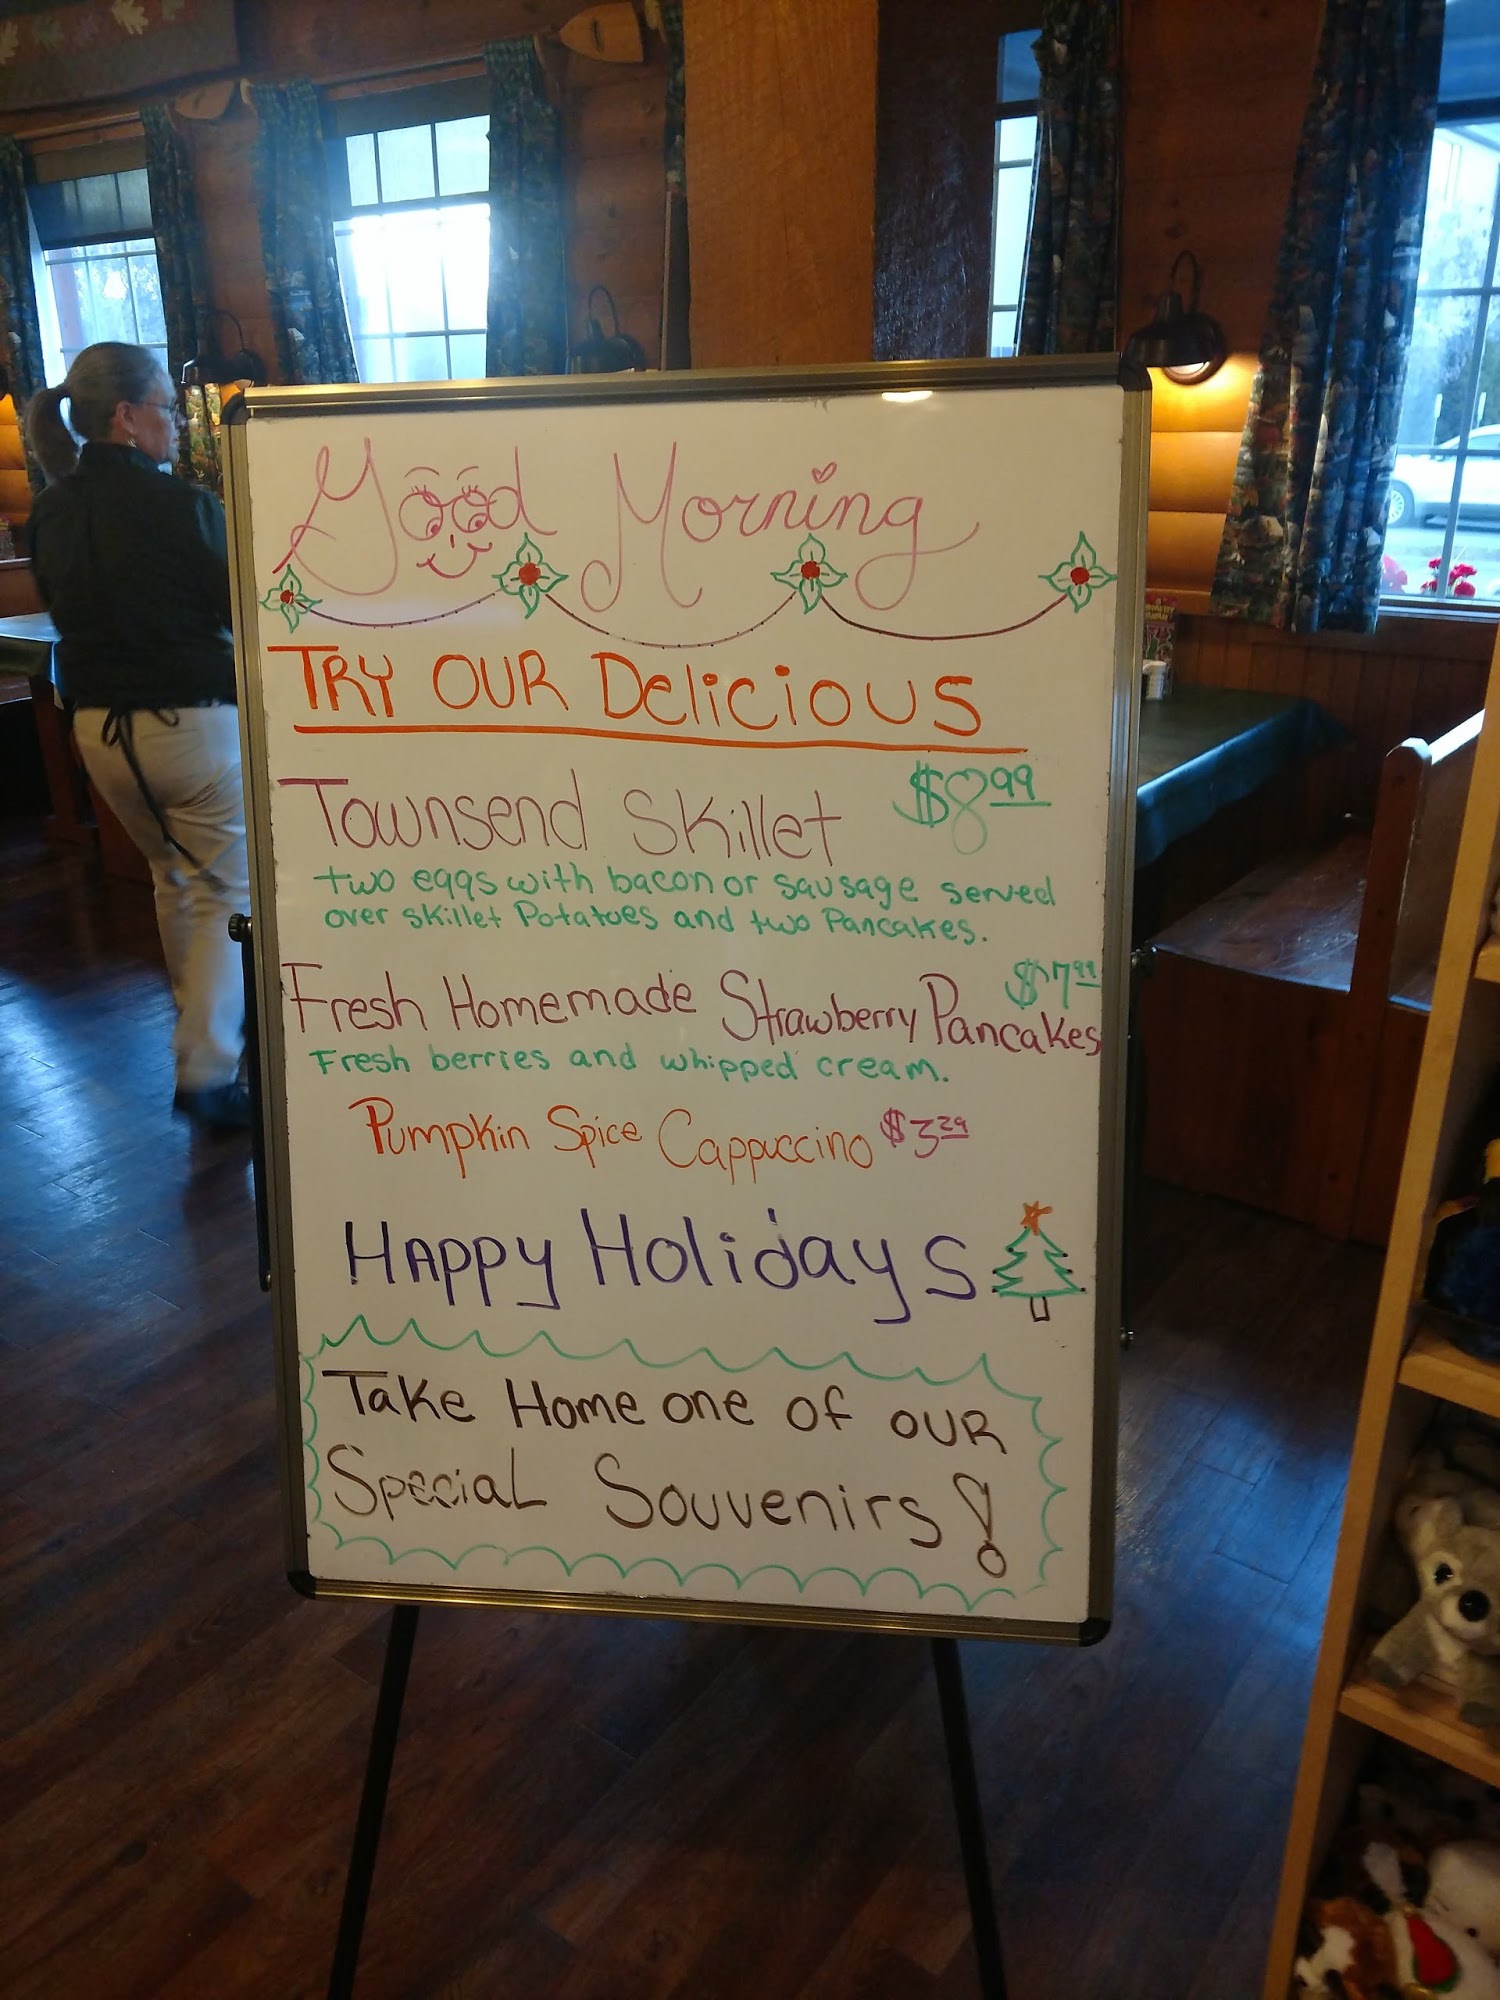 Good Morning
TRY OUR Delicious
Townsend Skillet $8.99
two eggs with bacon or sausage served
over skillet Potatoes and two Pancakes.
Fresh Homemade Strawberry Pancakes $7.99
Fresh berries and whipped cream.
Pumpkin Spice Cappuccino $3.29
HAPPY Holidays
Take Home one of OUR
Special Souvenirs!